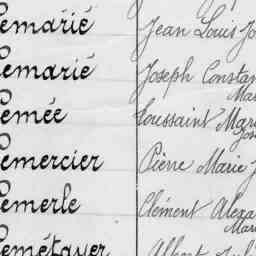 Lemarié Jean Louis Jo
Lemarié Joseph Constan
Mar
Lemée Toussaint Mar
Jos
Lemercier Pierre Marie J
Lemerle Clément Alexa
Mar
Lemétayer Albert Jul